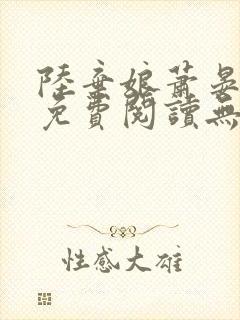 陸棄娘蕭晏
免費閱讀無
性感大雄